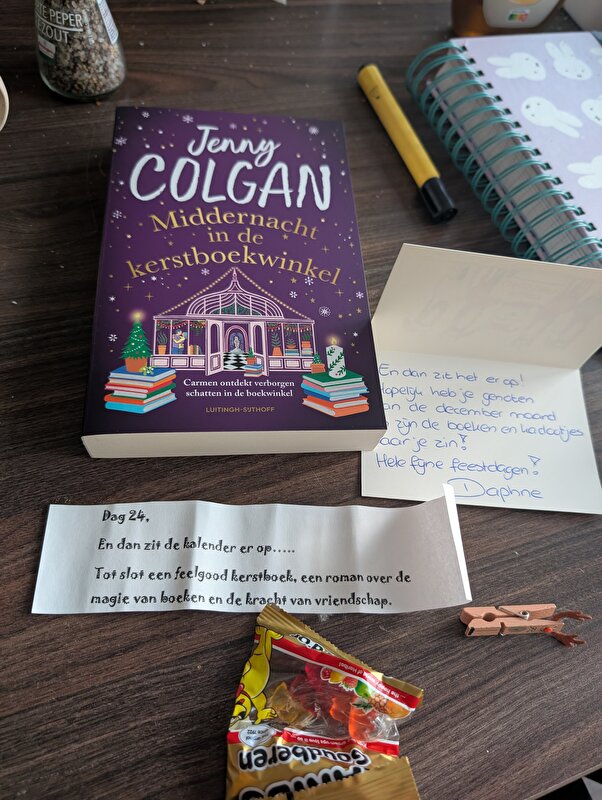 TE PEPER
EZOUT
Jenny
COLGAN
Middernacht
in de
kerstboekwinkel
Carmen ontdekt verborgen
schatten in de boekwinkel
LUITINGH-SIJTHOFF
En dan zit het er op!
Hopelijk heb je genoten
van de december maand
zijn de boeken en kadootjes
naar je zin!
Hele fijne feestdagen!
Daphne
Dag 24,
En dan zit de kalender er op.....
Tot slot een feelgood kerstboek, een roman over de
magie van boeken en de kracht van vriendschap.
Goudberen